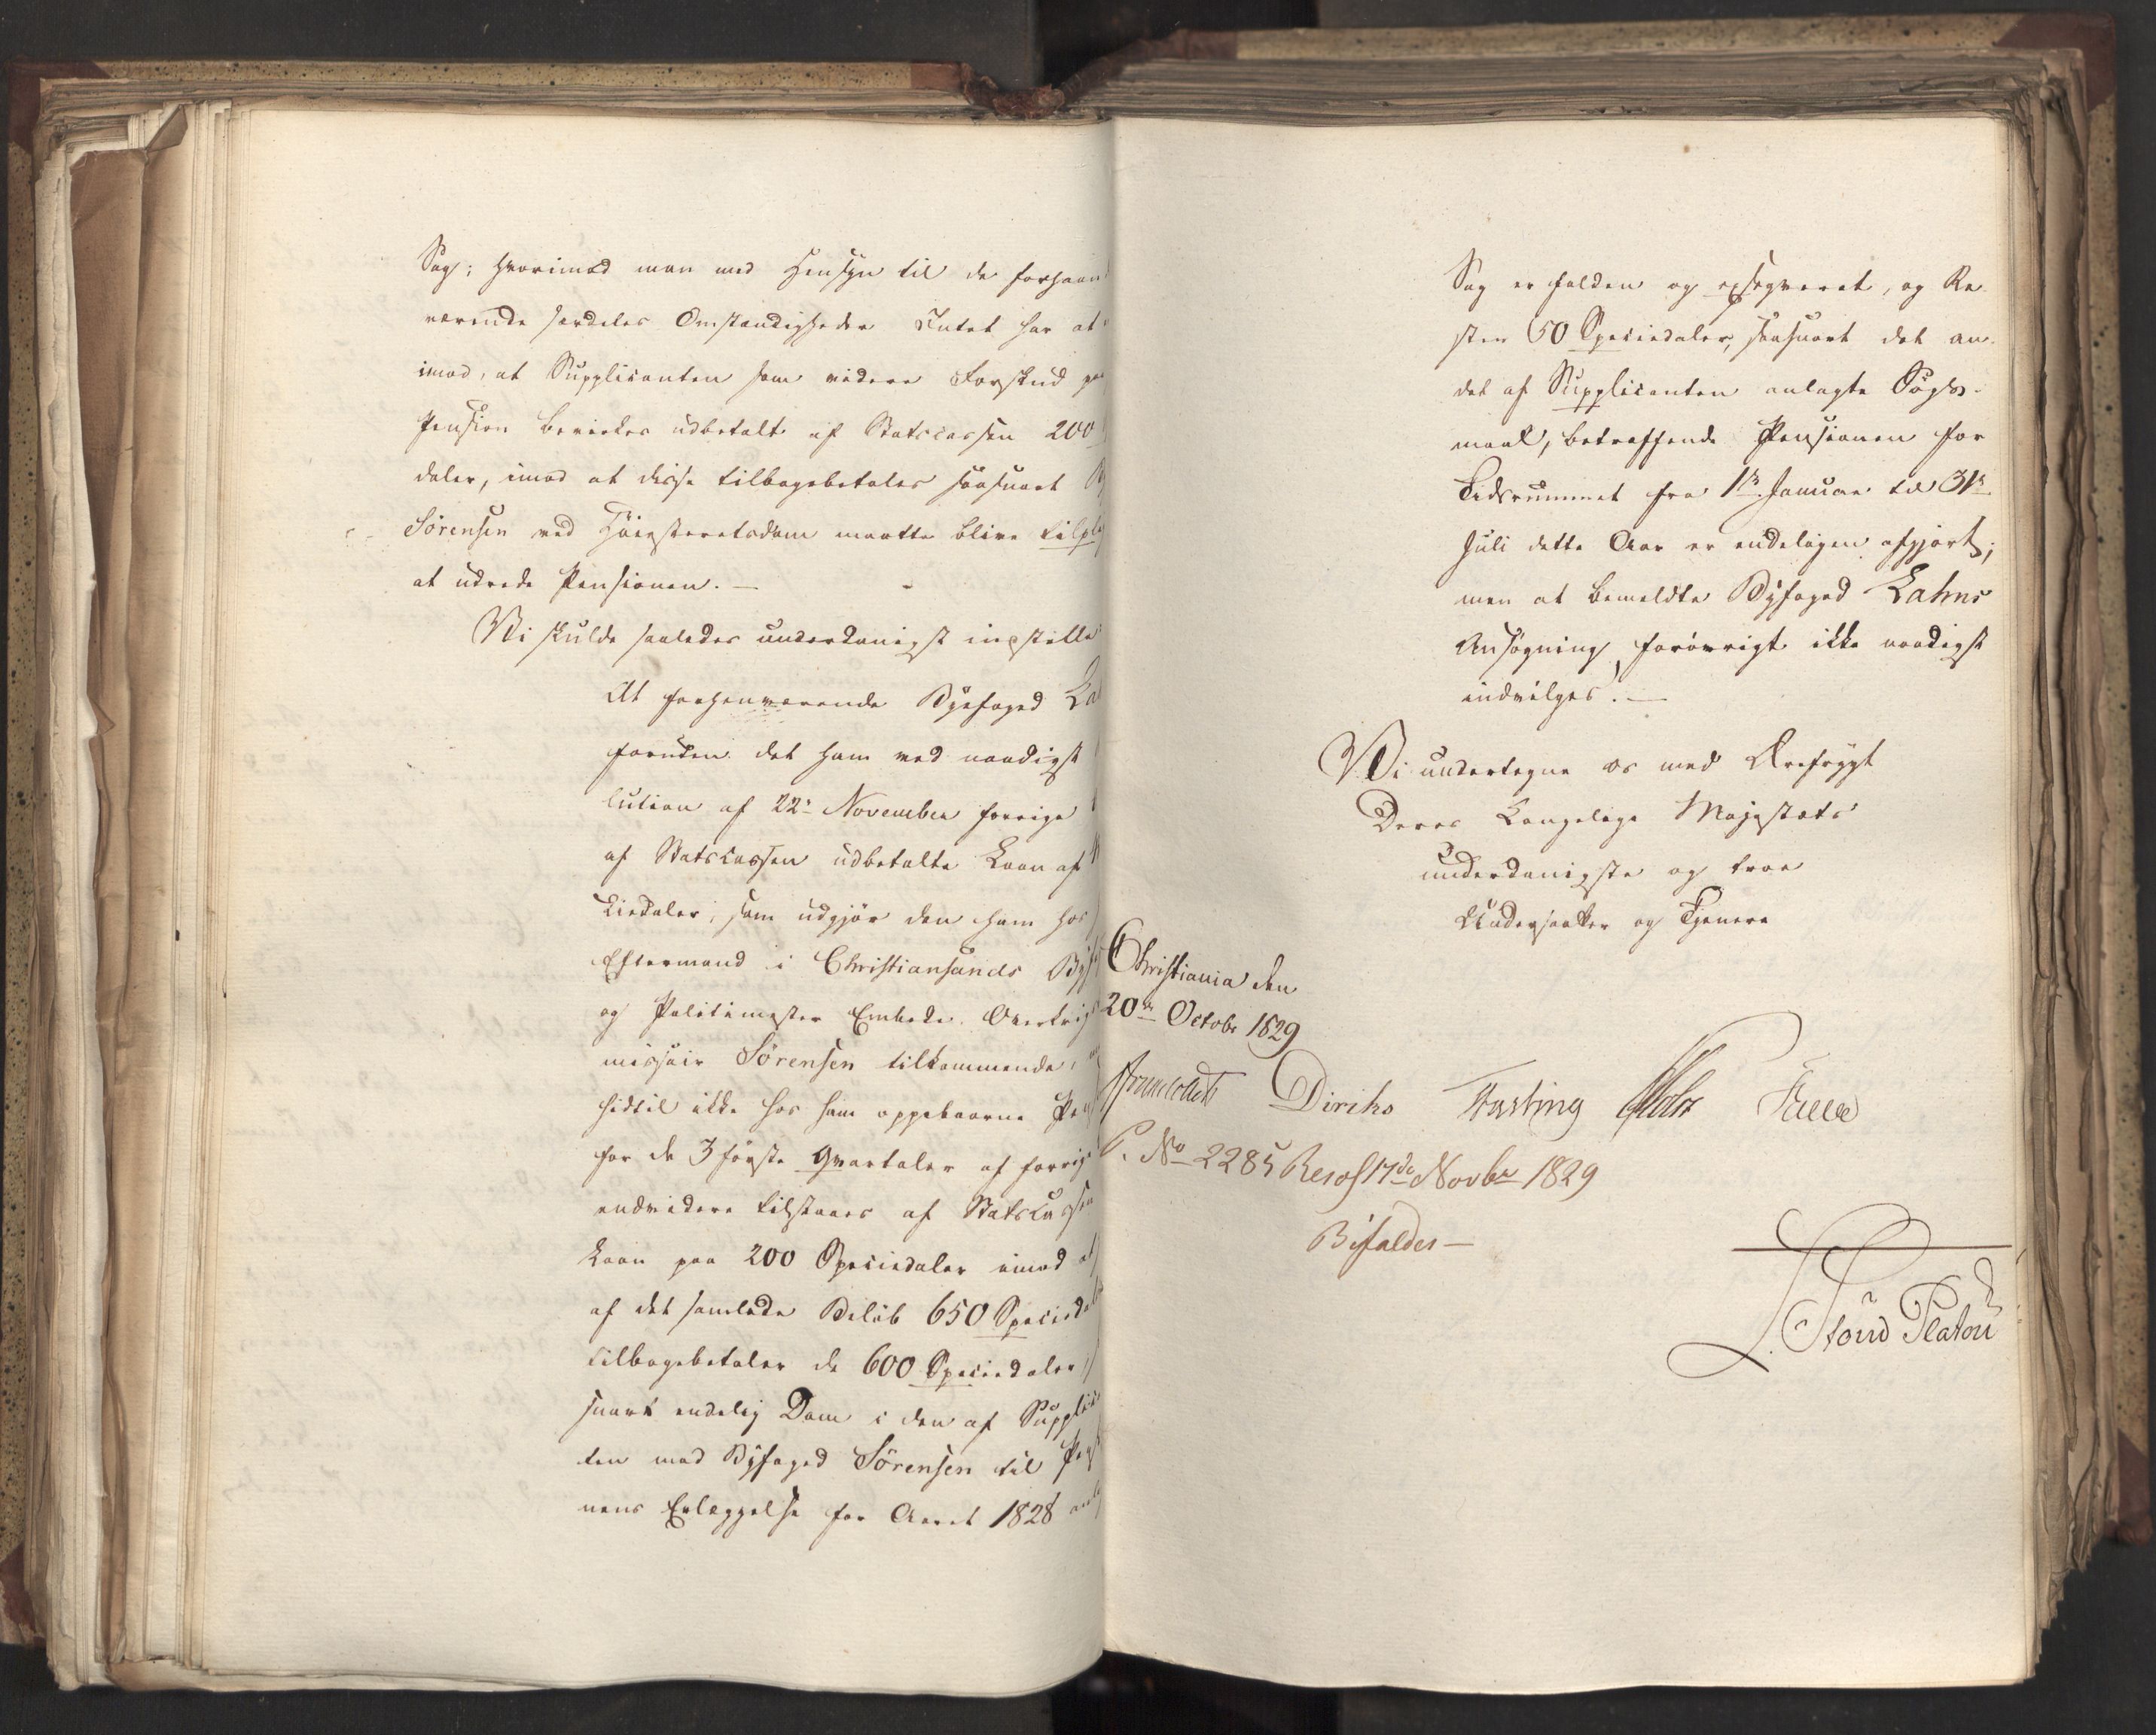 Sag; hvorimod man med Hensyn til de forhaan
værende særdeles Omstændigheder Intet har at
imod, at Supplicanten som videre Forskud paa
Pension bevirkes udbetalt af Statscassen 200
daler, imod at disse tilbagebetales saasnart
Sörensen ved Höiesteretsdom maatte blive tilpl
at udrede Pensionen. —
Vi skulde saaledes underdanigst instille
At forhenværende Byefoged La
foruden det ham ved naadigst
lution af 22de November forrige
af Statscassen udbetalte Laan af
ciedaler, som udgjör den ham hos
Eftermand i Christiansands Byf
og Politimester Embede, Overkrig
missair Sörensen tilkommende,
hidtil ikke hos ham oppebaarne Pen
for de 3 förste Qvartaler af forrige
endvidere tilstaaes af Statscassen
Laan paa 200 Speciedaler imod at
af det samlede Belöb 650 Specieda
tilbagebetaler de 600 Speciedaler
snart endelig Dom i den af Supplic
ten mod Byfoged Sörensen til Pen
nens Erlæggelse for Aaret 1828 anl
Sag er falden og exseqveret, og Re
sten 50 Speciedaler, saasnart det an
det af Supplicanten anlagte Sögs-
maal, betræffende Pensionen for
Tidsrummet fra 1ste Januar til 31te
Juli dette Aar er endeligen afgjort;
men at bemeldte Byfoged Lahns
Ansögning forövrigt ikke naadigst
indvilges. —
Vi undertegne os med Ærefrygt
Deres Kongelige Majestæts
underdanigste og troe
Undersaatter og Tjenere
Christiania den
20de Octobr 1829
Diriks Fasting
P. No 2285 Resol 17de Novbr 1829
Bifaldes —
Stoud Platou